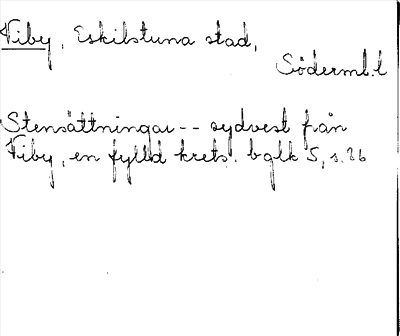 Viby, Eskilstuna stad,
Söderml.l
Stensättningar -- sydvest från
Viby, en fylld krets. bglk 5, s. 36